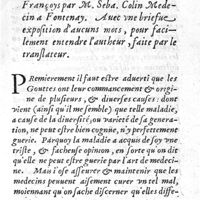 Françoys par M. Seba. Colin Mede-
cin a Fontenay. Auec vne briefue
exposition d'aucuns mots, pour faci-
lement entendre l'autheur, faite par le
translateur.
PRemierement il faut estre aduerti que les
Gouttes ont leur commancement & origi-
ne de plusieurs, & diuerses causes: dont
vient (ainsi qu'il me semble) que telle maladie,
a cause de la diuersité, ou varieté de sa genera-
tion, ne peut estre bien cognüe, n'y perfettement
guerie. Parquoy la maladie a acquis de soy vne
triste, & facheuse opinion, en sorte qu'on dit
qu'elle ne peut estre guerie par l'art de medeci-
ne. Mais i'ose asseurer & maintenir que les
medecins peuuent aisement curer vn tel mal,
moiennant qu'on sache discerner qu'elles diffe-